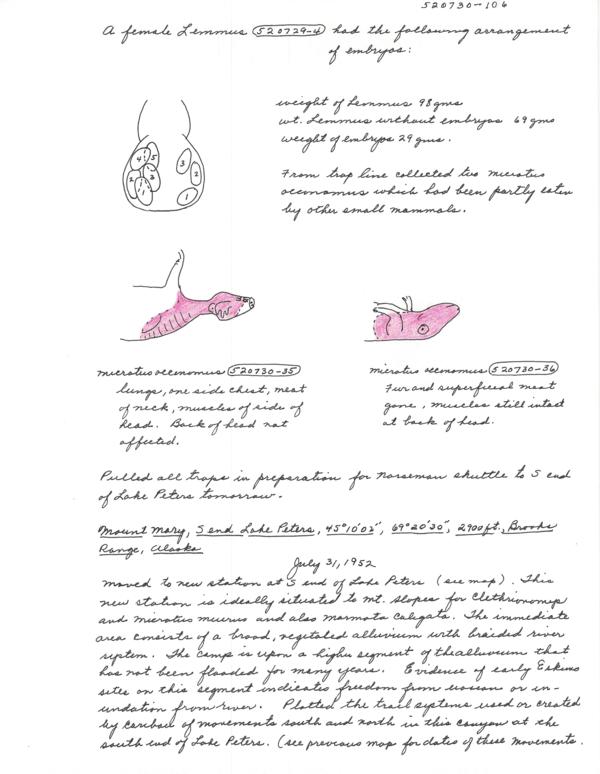 520730-106
A female Lemmus 520729-4 had the following arrangement
of embryos:
weight of Lemmus 98 gms
wt. Lemmus without embryos 69 gms
weight of embryos 29 gms.
4 5
2 3
1
3
2
1
From trap line collected two microtus
oeconomus which had been partly eaten
by other small mammals.
microtus oeconomus 520730-35
lungs, one side chest, meat
of neck, muscles of side of
head. Back of head not
affected.
microtus oeconomus 520730-36
Fur and superficial meat
gone, muscles still intact
at back of head.
Pulled all traps in preparation for norseman shuttle to S end
of Lake Peters tomorrow.
Mount Mary, S end Lake Peters, 45°10'02", 69°20'30", 2900 ft., Brooks
Range, Alaska
July 31, 1952
moved to new station at S end of Lake Peters (see map). This
new station is ideally situated to mt. slopes for Clethrionomys
and microtus miurus and also marmota caligata. The immediate
area consists of a broad, vegetated alluvium with braided river
system. The camp is upon a higher segment of the alluvium that
has not been flooded for many years. Evidence of early Eskimo
sites on this segment indicates freedom from erosion or in-
undation from river. Plotted the trail systems used or created
by caribou of movements south and north in this canyon at the
south end of Lake Peters. (see previous map for dates of these movements.